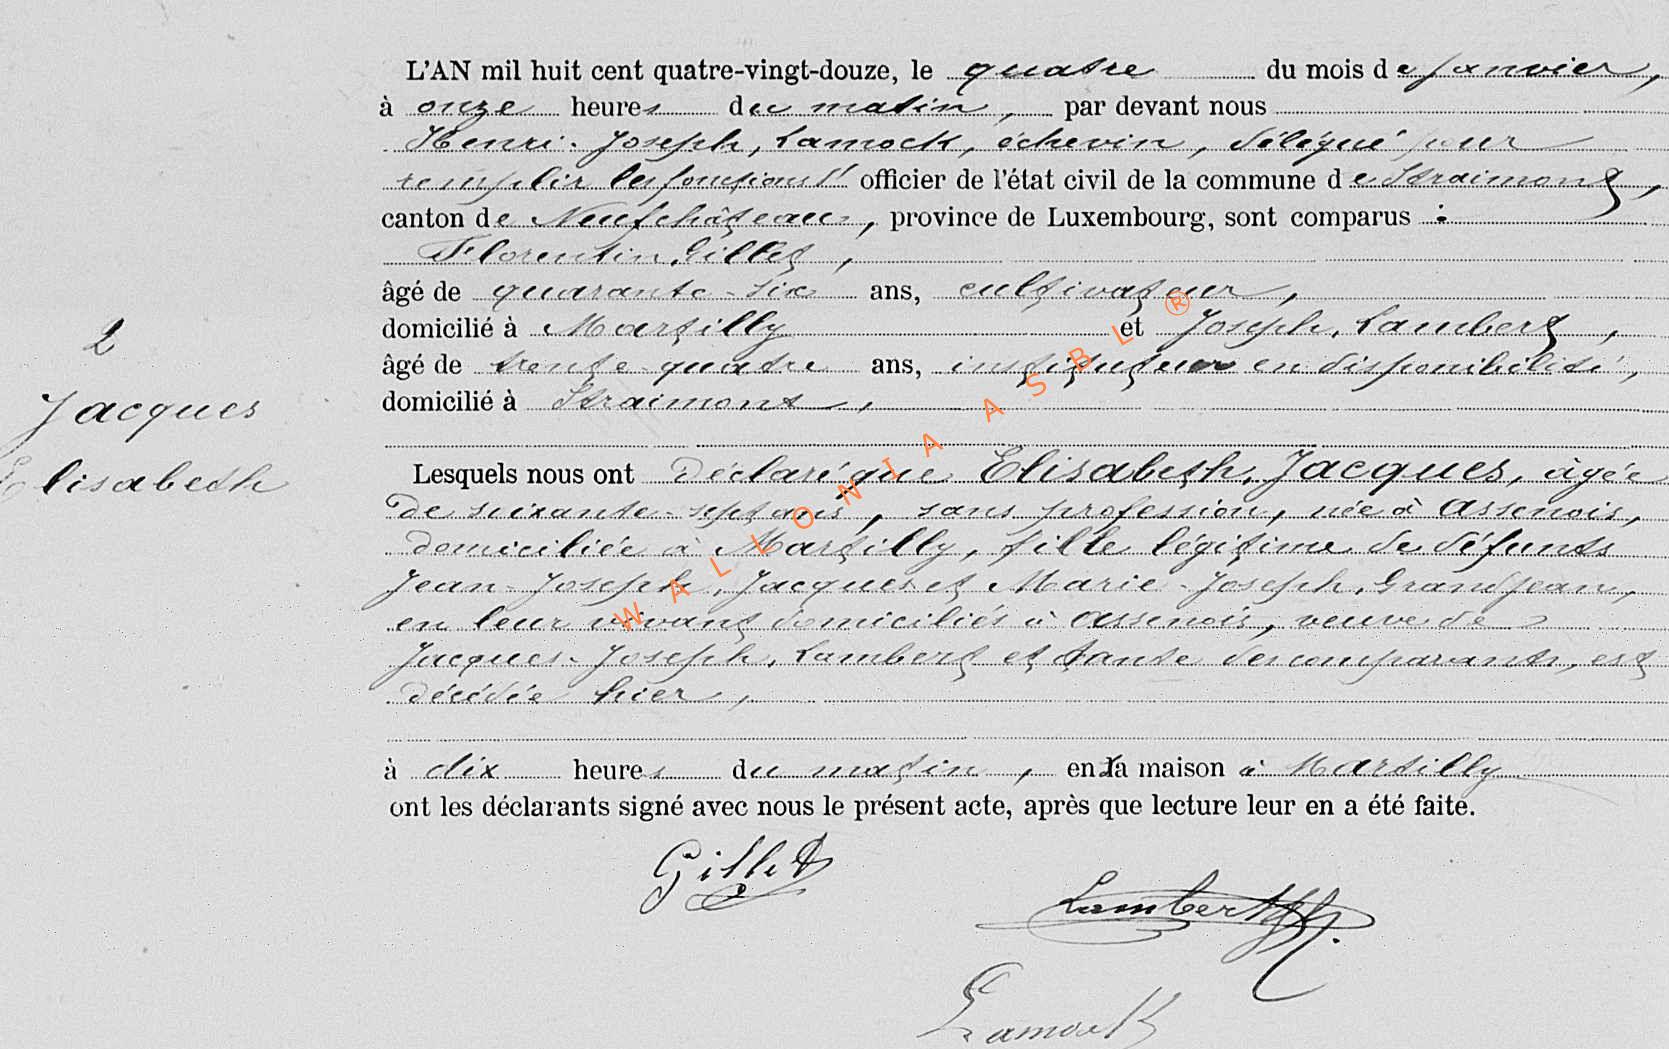 L'AN mil huit cent quatre-vingt-douze, le quatre du mois de janvier,
à onze heures du matin, par devant nous
Henri-Joseph, Lamock, échevin, délégué pour
remplir les fonctions d' officier de l'état civil de la commune de Straimont,
canton de Neufchâteau, province de Luxembourg, sont comparus :
Florentin, Gillet,
âgé de quarante-six ans, cultivateur,
domicilié à Martilly et Joseph, Lambert,
2
âgé de trente-quatre ans, instituteur en disponibilité,
domicilié à Straimont,
Jacques
Elisabeth
Lesquels nous ont déclaré que Elisabeth, Jacques, âgée
de soixante-sept ans, sans profession, née à Assenois,
domiciliée à Martilly, fille légitime de défunts
Jean-Joseph, Jacques et Marie-Joseph, Grandjean,
en leur vivant domiciliés à Assenois, veuve de
Jacques-Joseph, Lambert et tante des comparants, est
décédée hier,
à dix heures du matin, en sa maison à Martilly
ont les déclarants signé avec nous le présent acte, après que lecture leur en a été faite.
Gillet
Lambert
Lamock
WALLONIA ASBL ®